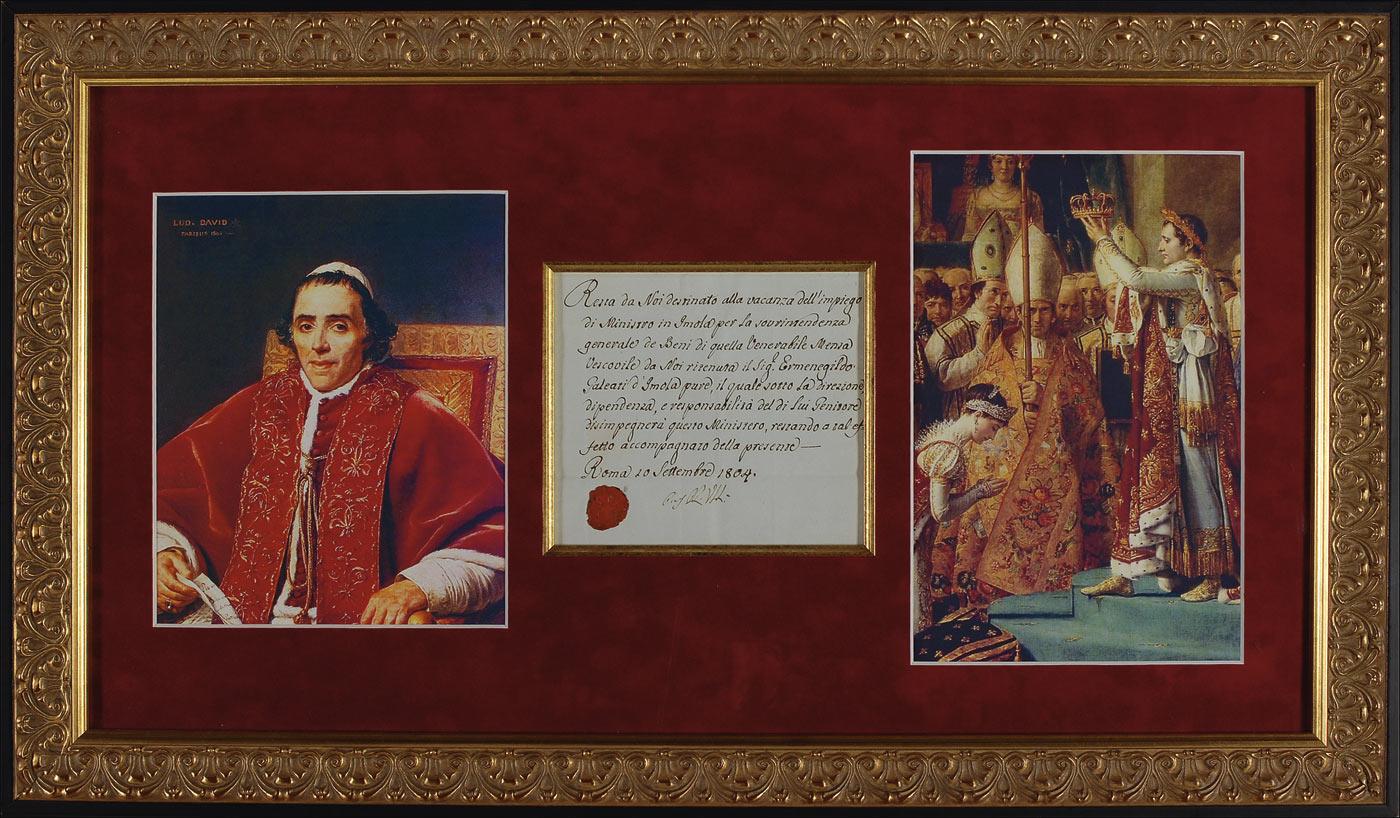 LUD. DAVID
PARISIIS 1805
Resta da Noi destinato alla vacanza dell'impiego
di Ministro in Imola per la sovrintendenza
generale de Beni di quella Venerabile Mensa
Vescovile da Noi ritenuta il Sig.r Ermenegildo
Galeati d'Imola pure, il quale sotto la direzione
dipendenza, e responsabilità del di lui Genitore
disimpegnerà questo Ministero, restando a tal ef
fetto accompagnato della presente —
Roma 10 Settembre 1804.